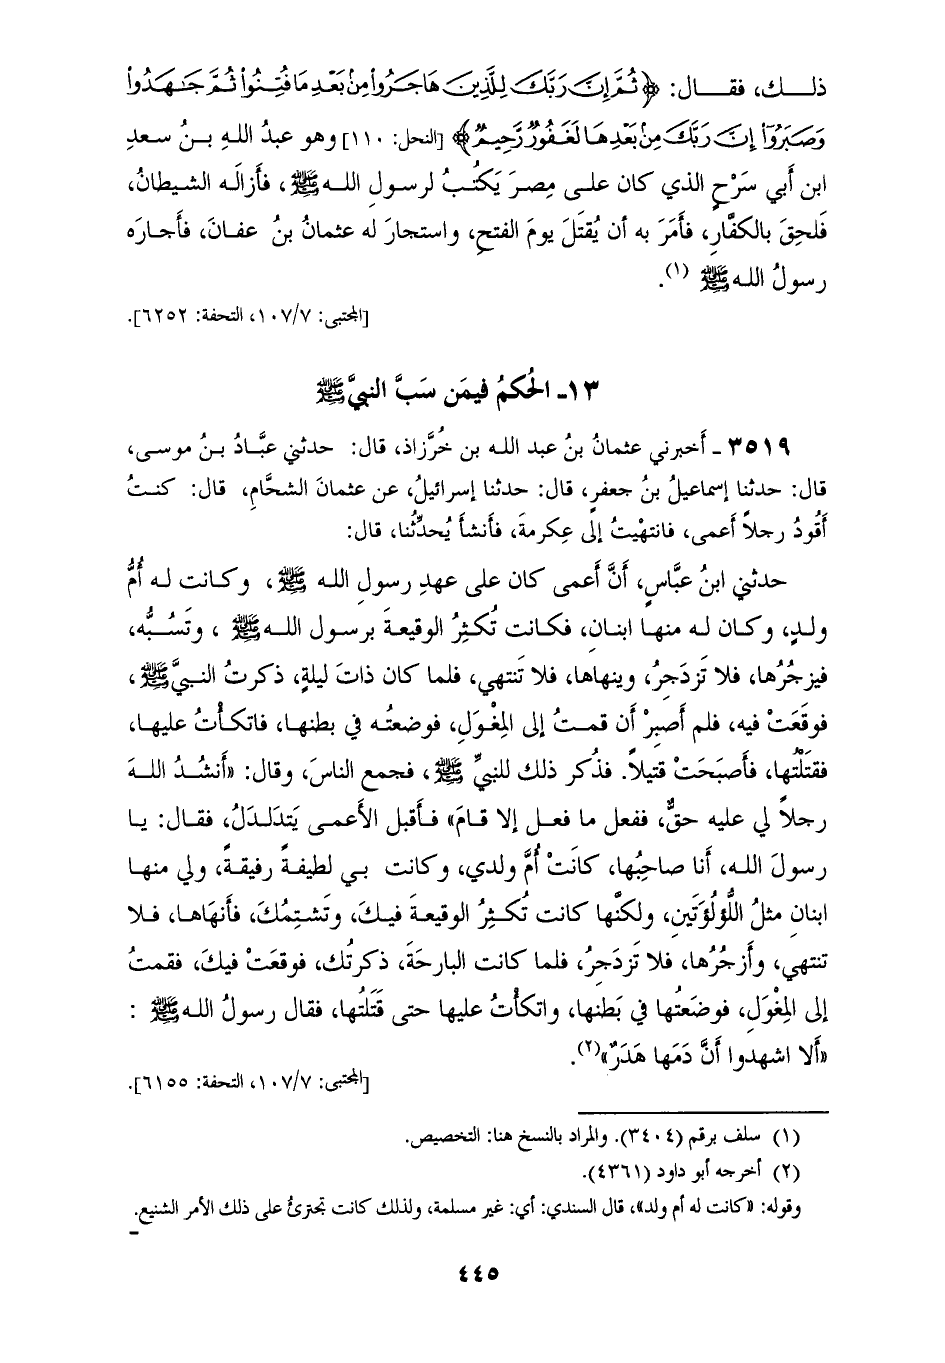 ذلـك، فقـال: ﴿ثُمَّ إِنَّ رَبَّكَ لِلَّذِينَ هَاجَرُواْ مِنۢ بَعۡدِ مَا فُتِنُواْ ثُمَّ جَٰهَدُواْ
وَصَبَرُوٓاْ إِنَّ رَبَّكَ مِنۢ بَعۡدِهَا لَغَفُورٞ رَّحِيمٞ﴾ [النحل: ١١٠] وهو عبدُ اللهِ بـنُ سعدِ
ابن أَبي سَرْحٍ الذي كان علـى مِصرَ يَكتُبُ لرسـولِ اللـهِ ﷺ، فأَزالَه الشيطانُ،
فَلحِقَ بالكفَّارِ، فأَمَرَ به أن يُقتَلَ يومَ الفتحِ، واستجارَ له عثمانُ بنُ عفانَ، فأَجـارَه
رسولُ اللـهِ ﷺ (١).
[المجتبى: ١٠٧/٧، التحفة: ٦٢٥٢].
١٣ـ الحُكمُ فيمَن سَبَّ النبيَّ ﷺ
٣٥١٩ ـ أَخبرني عثمانُ بنُ عبد الله بن خُرَّزاذ، قال: حدثني عبَّادُ بـنُ موسـى،
قال: حدثنا إسماعيلُ بنُ جعفرٍ، قال: حدثنا إسرائيلُ، عن عثمانَ الشحَّامِ، قال: كنـتُ
أَقُودُ رجلاً أَعمى، فانتهَيْتُ إلى عِكرمةَ، فأَنشأَ يُحدِّثُنا، قال:
حدثني ابنُ عبَّاسٍ، أنَّ أَعمى كان على عهدِ رسولِ الله ﷺ، وكـانت لـه أُمُّ
ولـدٍ، وكـان لـه منهـا ابنـان، فكـانت تُكثِرُ الوقيعةَ برسـول اللـه ﷺ، وتَسُـبُّه،
فيزجُرُها، فلا تَزدَجِرُ، وينهاها، فلا تَنتهي، فلما كان ذاتَ ليلةٍ، ذكرتُ النـبيَّ ﷺ،
فوقَعَتْ فيه، فلم أَصبِرْ أن قمـتُ إلى المِغْوَلِ، فوضعتُـه في بطنهـا، فاتكـأْتُ عليهـا،
فقتَلْتُها، فأَصبَحَتْ قتيلاً. فذُكر ذلك للنبيِّ ﷺ، فجمع الناسَ، وقال: «أَنشُـدُ اللـهَ
رجلاً لي عليه حقٌّ، ففعل ما فعـل إلا قـامَ» فـأَقبل الأَعمـى يَتدَلـدَلُ، فقـال: يـا
رسولَ الله، أنا صاحِبُها، كانَتْ أُمَّ ولدي، وكانت بـي لطيفـةً رفيقـةً، ولي منهـا
ابنانِ مثلُ اللُّؤلُؤَتَينِ، ولكنَّها كانت تُكـثِرُ الوقيعةَ فيـكَ، وتَشـتِمُكَ، فأَنهَاهـا، فـلا
تنتهي، وأَزجُرُها، فلا تَزدَجِرُ، فلما كانت البارحَةَ، ذكرتُك، فوقعَتْ فيكَ، فقمتُ
إلى المِغْوَلِ، فوضَعتُها في بَطنِها، واتكأْتُ عليها حتى قَتَلتُها، فقال رسولُ اللـه ﷺ :
«ألا اشهدوا أنَّ دَمَها هَدَرٌ» (٢).
[المجتبى: ١٠٧/٧، التحفة: ٦١٥٥].
(١) سلف برقم (٣٤٠٤). والمراد بالنسخ هنا: التخصيص.
(٢) أخرجه أبو داود (٤٣٦١).
وقوله: «كانت له أم ولد»، قال السندي: أي: غير مسلمة، ولذلك كانت تجترئُ على ذلك الأمر الشنيع.
٤٤٥